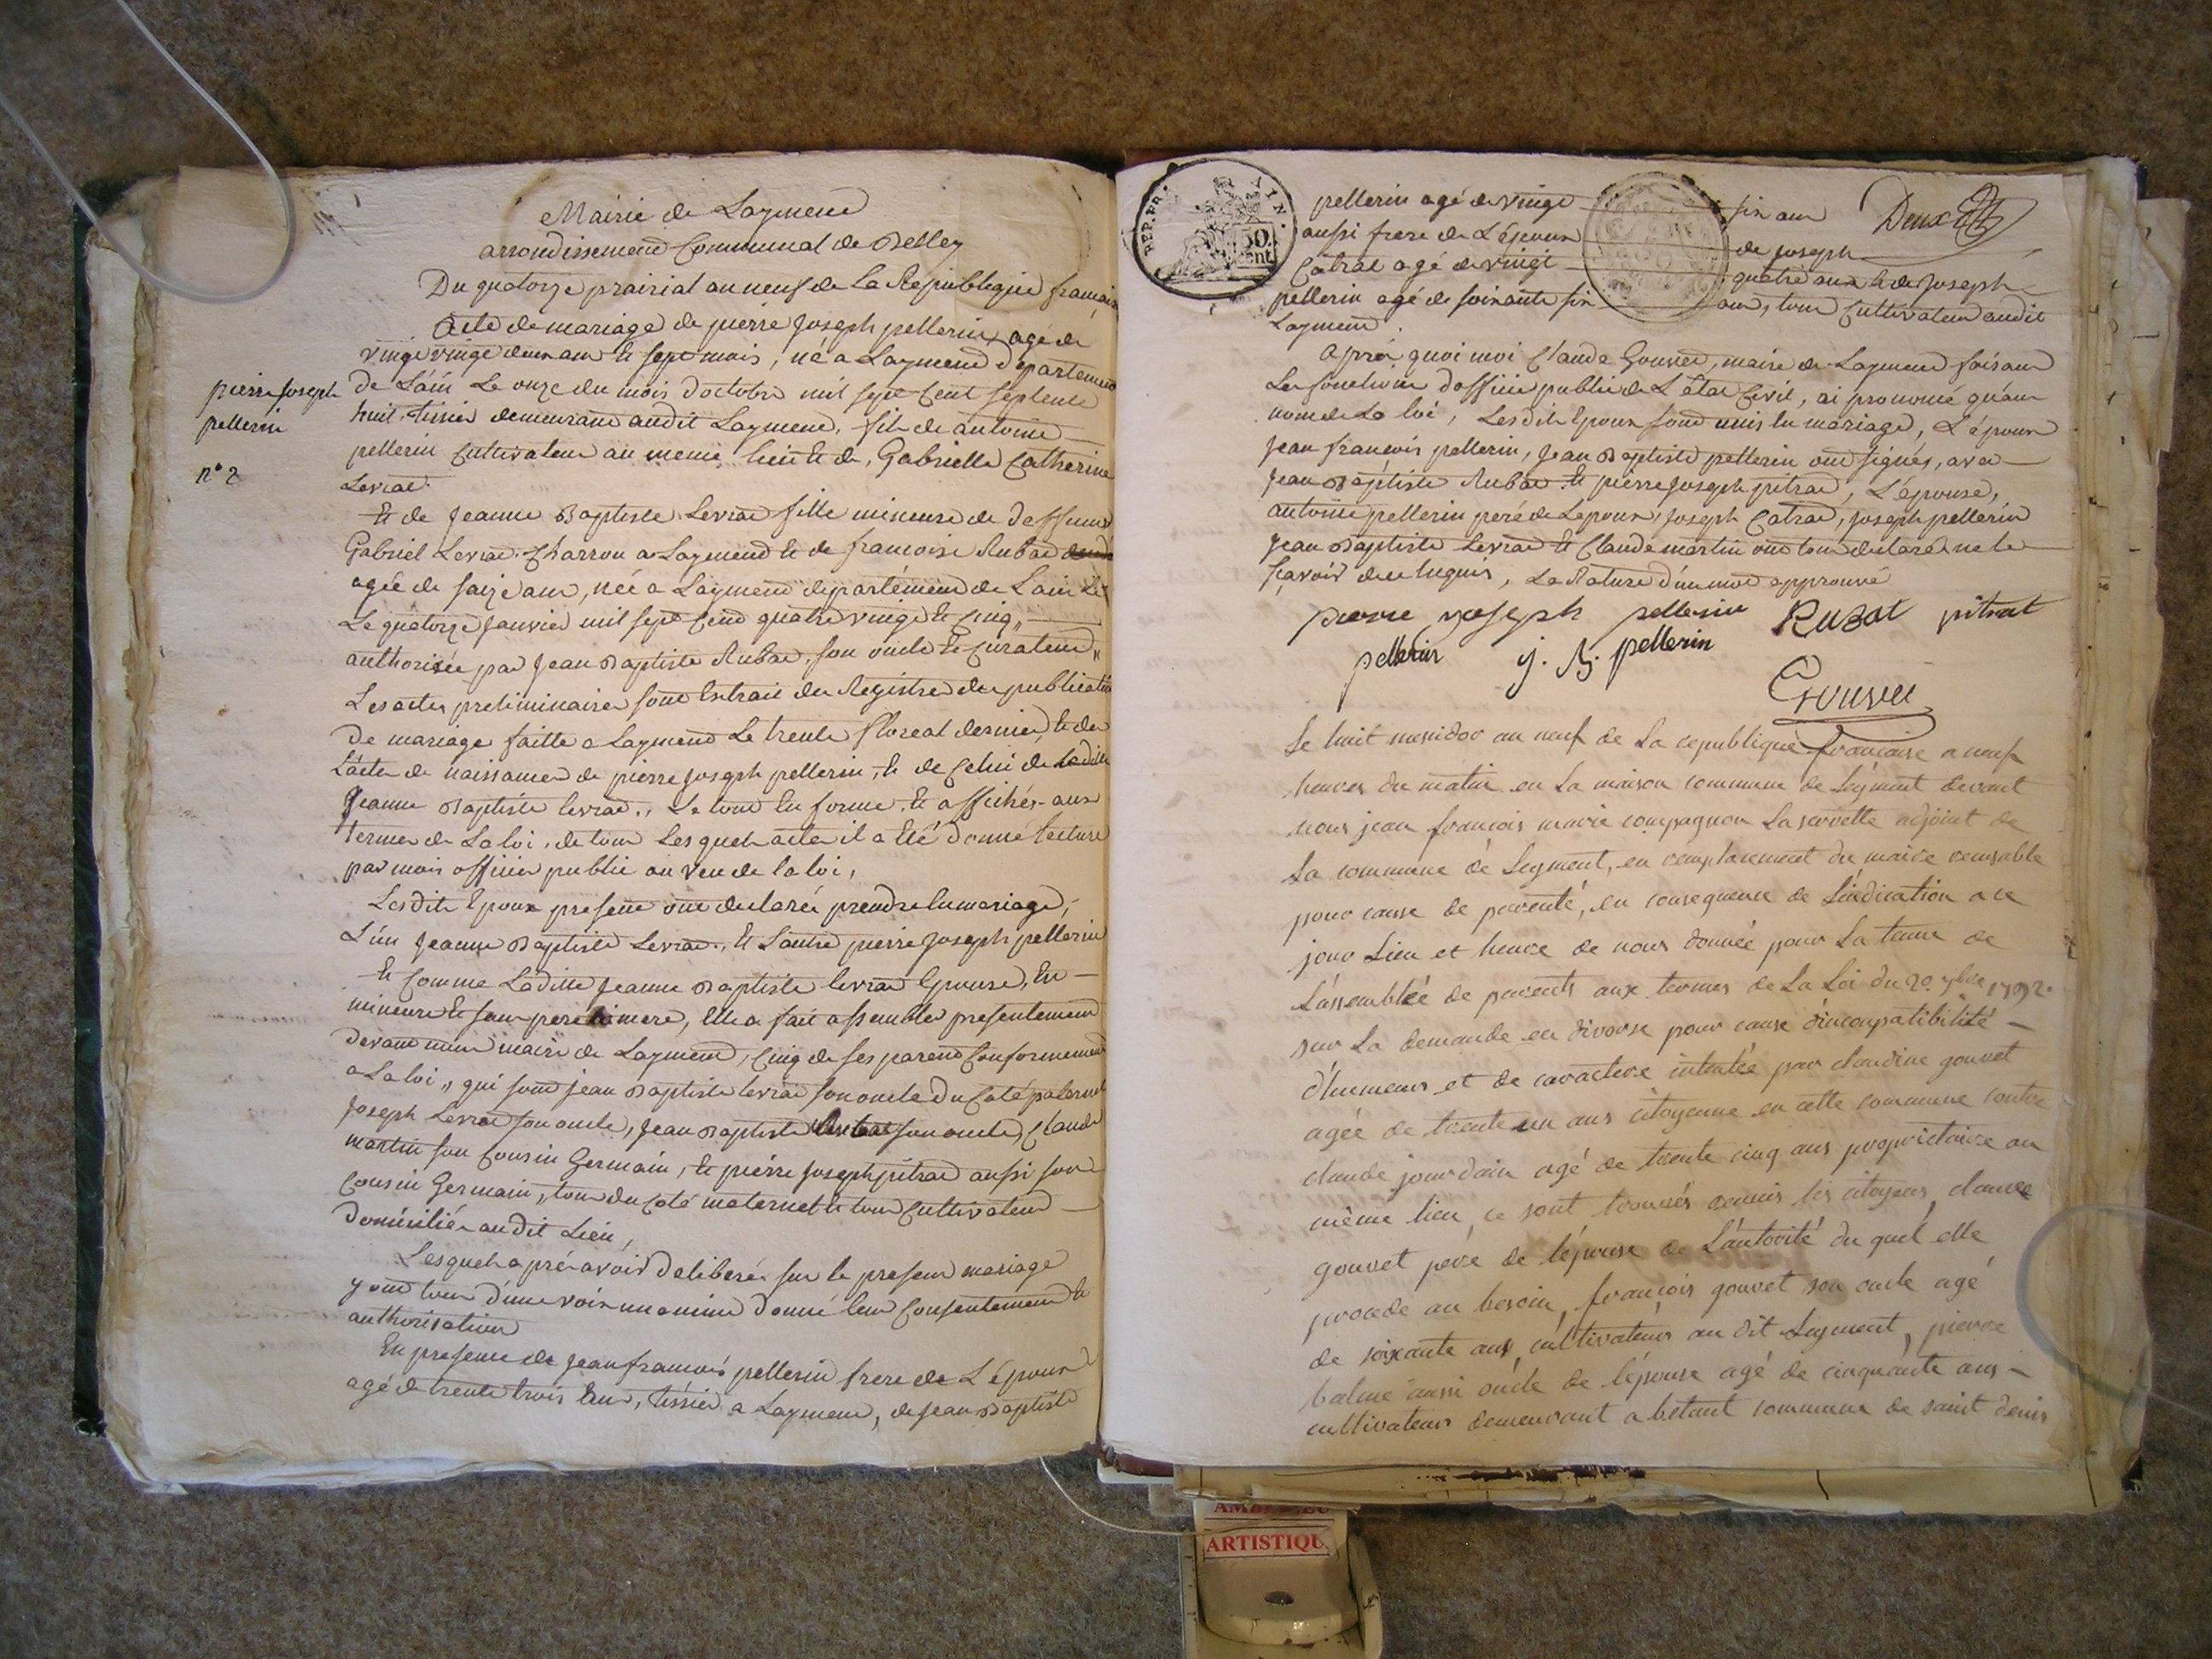 Mairie de Laymend
arrondissement Communal de Belley
Du quatorze prairial an neuf de la Republique françai
Acte de mariage de pierre Joseph pellerin agé de
vingt vingt deux ans et sept mois, né a Laymend departement
de L'ain Le onze du mois doctobre mil sept Cent septente
huit, tissier demeurant audit Laymend, fils de antoine
pellerin Cultivateur au meme lieu et de Gabrielle Catherine
Levrat
pierre Joseph
pellerin
n° 2
Et de Jeanne Baptiste Levrat fille mineure de deffunt
Gabriel Levrat Charron a Laymend et de françoise Rubat
agée de saize ans, née a Laymend departement de L'ain Le
Le quatorze Janvier mil sept Cend quatre vingt et Cinq
authorisée par Jean Baptiste Rubat son oncle et Curateur
Les actes preliminaires sont Extrait des Registres de publicati
de mariage faitte a Laymend Le trente floreal dernier, et des
L'actes de naissances de pierre Joseph pellerin, et de Celui de ladite
Jeanne Baptiste levrat, Le tout En forme, Et affichés aux
termes de La loi, de tous Les quels actes il a Eté donné lecture
par moi officier public au veu de la loi,
Lesdits Epoux presents ont declarés prendre En mariage,
L'un Jeanne Baptiste Levrat, Et L'autre pierre Joseph pellerin
Et Comme Laditte Jeanne Baptiste levrat Epouse, Est
mineure et sans pere ni mere, Elle a fait assembler presentement
devant nous maire de Laymend, Cinq de ses parend Conformement
a La loi, qui sont jean Baptiste levrat son oncle du Coté paternel
Joseph Levrat son oncle, Jean Baptiste Rubat son oncle, Claude
martin son Cousin Germain, Et pierre Joseph pitrat aussi son
Cousin Germain, tous du Coté maternel et tous Cultivateurs
domiciliés audit Lieu,
Lesquels après avoir deliberés sur le present mariage
y ont tous d'une voix unanime donné leur Consentement et
authorisation
En presence de Jean francois pellerin frere de L'époux
agé de trente trois Ens, tissier a Laymend, de Jean Baptiste
pellerin agé de vingt six ans Deux
aussi frere de L'époux de Joseph
Catrat agé de vingt quatre ans et de Joseph
pellerin agé de soixante six ans, tous Cultivateurs audit
Laymend.
Après quoi moi Claude Gouvet, maire de Laymend faisant
Les fonctions d'officier public de L'état Civil, ai prononcé qu'au
nom de La loi, Lesdits Epoux sont unis En mariage, L'époux
Jean francois pellerin, Jean Baptiste pellerin ont signés, avec
Jean Baptiste Rubat Et pierre Joseph pitrat, L'épouse,
antoine pellerin pere de Lepoux, Joseph Catrat, Joseph pellerin
Jean Baptiste Levrat Et Claude martin ont tous declarés ne le
sçavoir de ce Enquis, La Rature d'un mot approuvé
pierre joseph pellerin Rubat pitrat
pellerin j. B. pellerin
Gouvet
Le huit messidor an neuf de la republique française a neuf
heures du matin en la maison commune de Leyment devant
nous jean françois marie compagnon Laservette adjoint de
la commune de Leyment, en remplacement du maire recusable
pour cause de parenté, en consequence de L'indication a ce
jour Lieu et heure de nous donnée pour La tenue de
L'assemblée de parents aux termes de La Loi du 20 7bre 1792
sur La demande en divorse pour cause d'incompatibilité
d'humeurs et de caractere intentée par claudine gouvet
agée de trente un ans citoyenne en cette commune contre
claude jourdain agé de trente cinq ans proprietaire au
même lieu, ce sont trouvés reunis les citoyens claude
gouvet père de lépouse de L'autorité du quel elle
procede au besoin, françois gouvet son oncle agé
de soixante ans cultivateurs au dit Leyment, pierre
balme aussi oncle de lépouse agé de cinquante ans
cultivateurs demeurant a betant commune de saint denis
REP. FRA.
50.
cent
AMB
ARTISTIQU